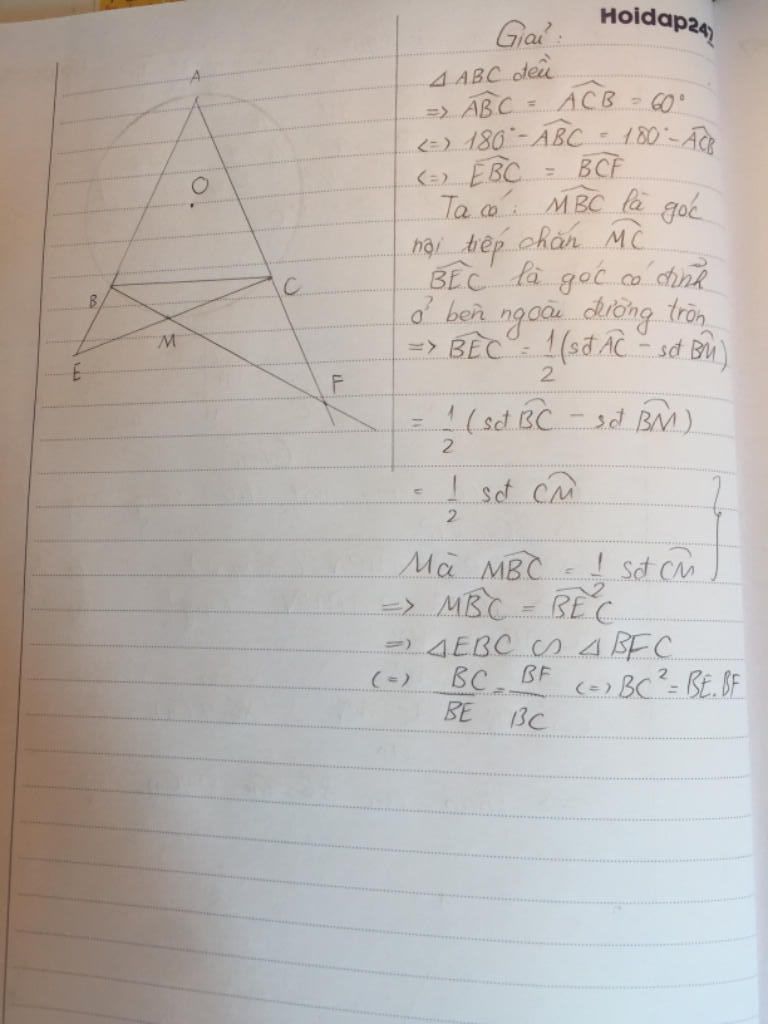 Hoidap247
Giải:
A
O
B
C
M
E
F
△ABC đều
=> \widehat{ABC} = \widehat{ACB} = 60°
<=> 180° - \widehat{ABC} = 180° - \widehat{ACB}
<=> \widehat{EBC} = \widehat{BCF}
Ta có: \widehat{MBC} là góc
nội tiếp chắn \widehat{MC}
\widehat{BEC} là góc có đỉnh
ở bên ngoài đường tròn
=> \widehat{BEC} = \frac{1}{2}(sđ \widehat{AC} - sđ \widehat{BM})
= \frac{1}{2}(sđ \widehat{BC} - sđ \widehat{BM})
= \frac{1}{2} sđ \widehat{CM}
Mà \widehat{MBC} = \frac{1}{2} sđ \widehat{CM}
=> \widehat{MBC} = \widehat{BEC}
=> △EBC ∽ △BFC
(=) \frac{BC}{BE} = \frac{BF}{BC} <=> BC² = BE.BF